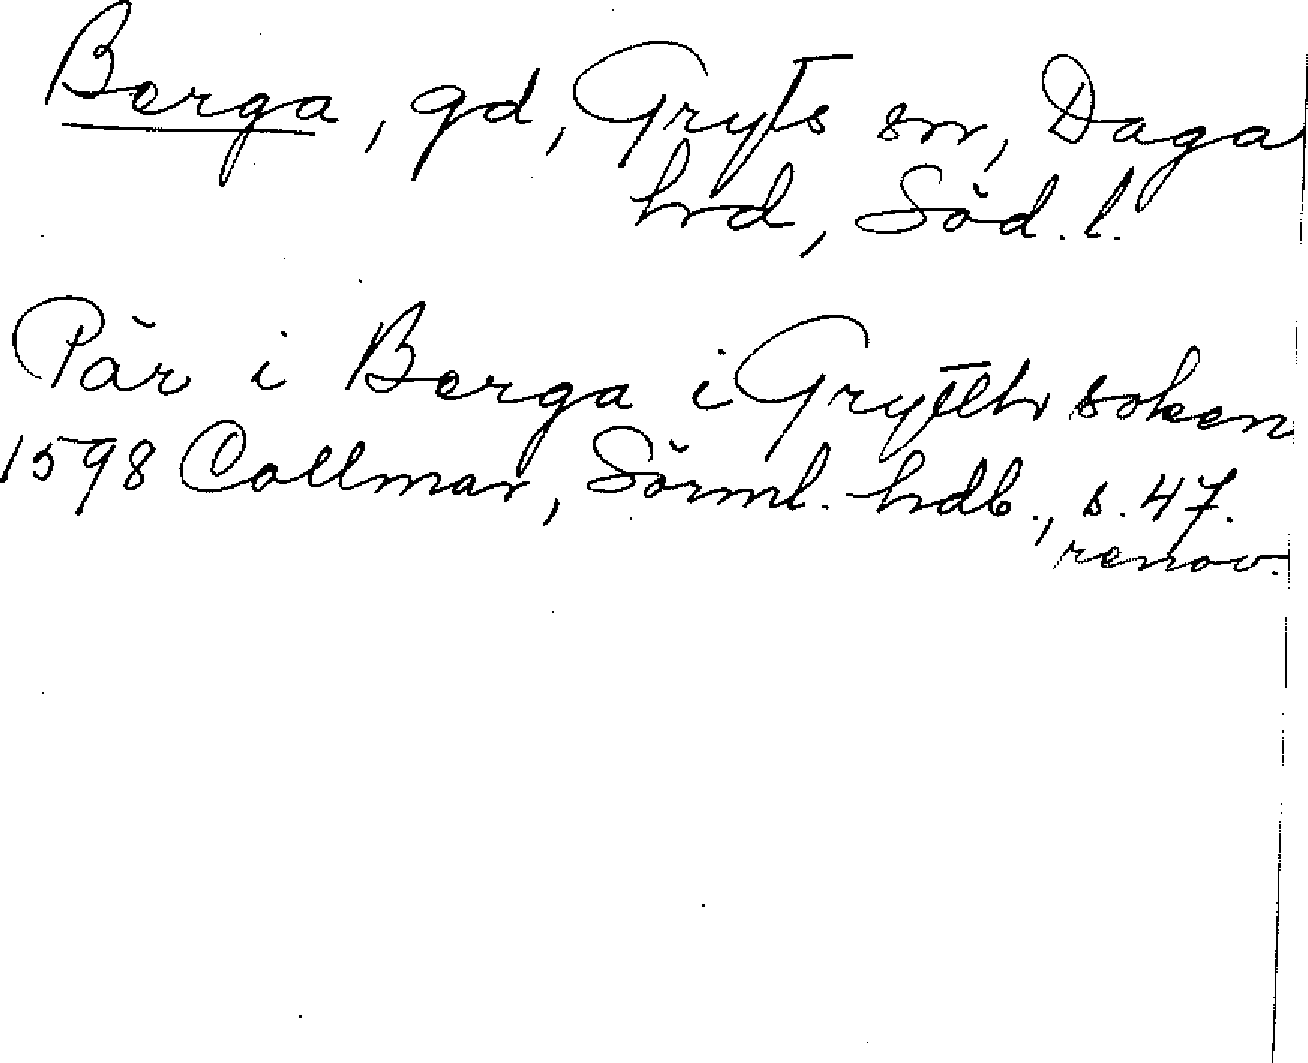 Berga, gd, Gryts sn, Daga
hrd, Söd. l.
Pär i Berga i Grytth soken
1598 Collmar, Sörml. hdb., s. 47.
renov.